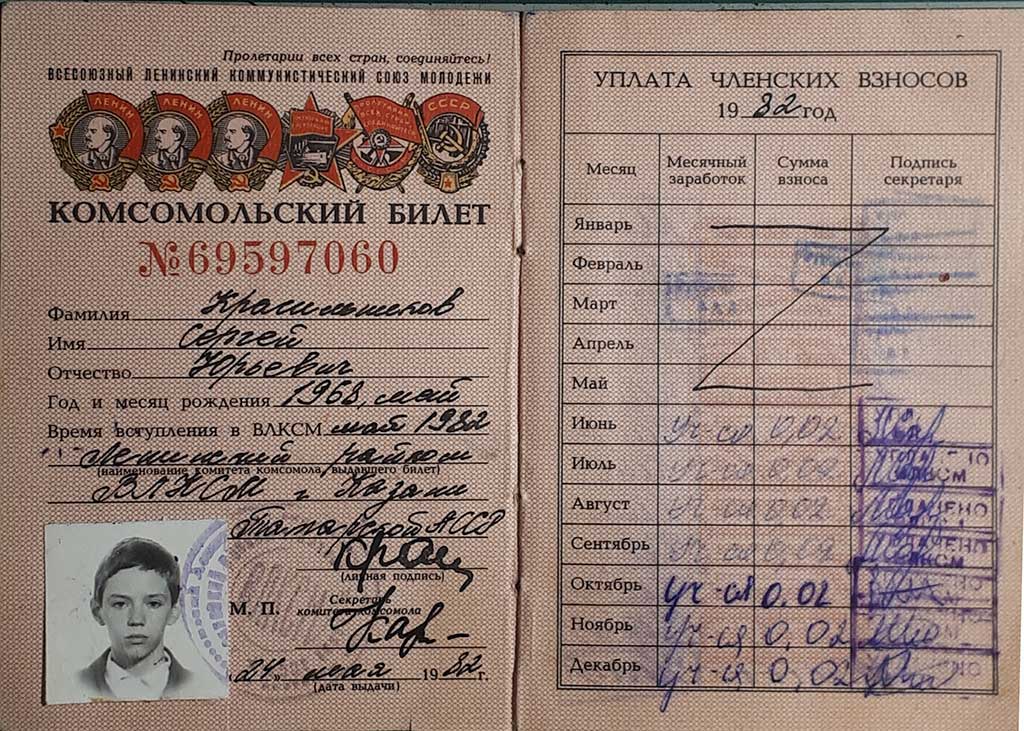 Пролетарии всех стран, соединяйтесь!
ВСЕСОЮЗНЫЙ ЛЕНИНСКИЙ КОММУНИСТИЧЕСКИЙ СОЮЗ МОЛОДЕЖИ
ЛЕНИН ЛЕНИН ЛЕНИН СССР
КОМСОМОЛЬСКИЙ БИЛЕТ
№69597060
Фамилия Красильников
Имя Сергей
Отчество Юрьевич
Год и месяц рождения 1968, май
Время вступления в ВЛКСМ май 1982
Ленинский райком
(наименование комитета комсомола, выдавшего билет)
ВЛКСМ г. Казани
Татарской АССР
(личная подпись)
М. П. Секретарь
комитета комсомола
"24" мая 1982 г.
(дата выдачи)
УПЛАТА ЧЛЕНСКИХ ВЗНОСОВ
1982 год
Месяц Месячный заработок Сумма взноса Подпись секретаря
Январь
Февраль
Март
Апрель
Май
Июнь уч-ся 0,02
Июль уч-ся 0,02
Август уч-ся 0,02
Сентябрь уч-ся 0,02
Октябрь уч-ся 0,02
Ноябрь уч-ся 0,02
Декабрь уч-ся 0,02